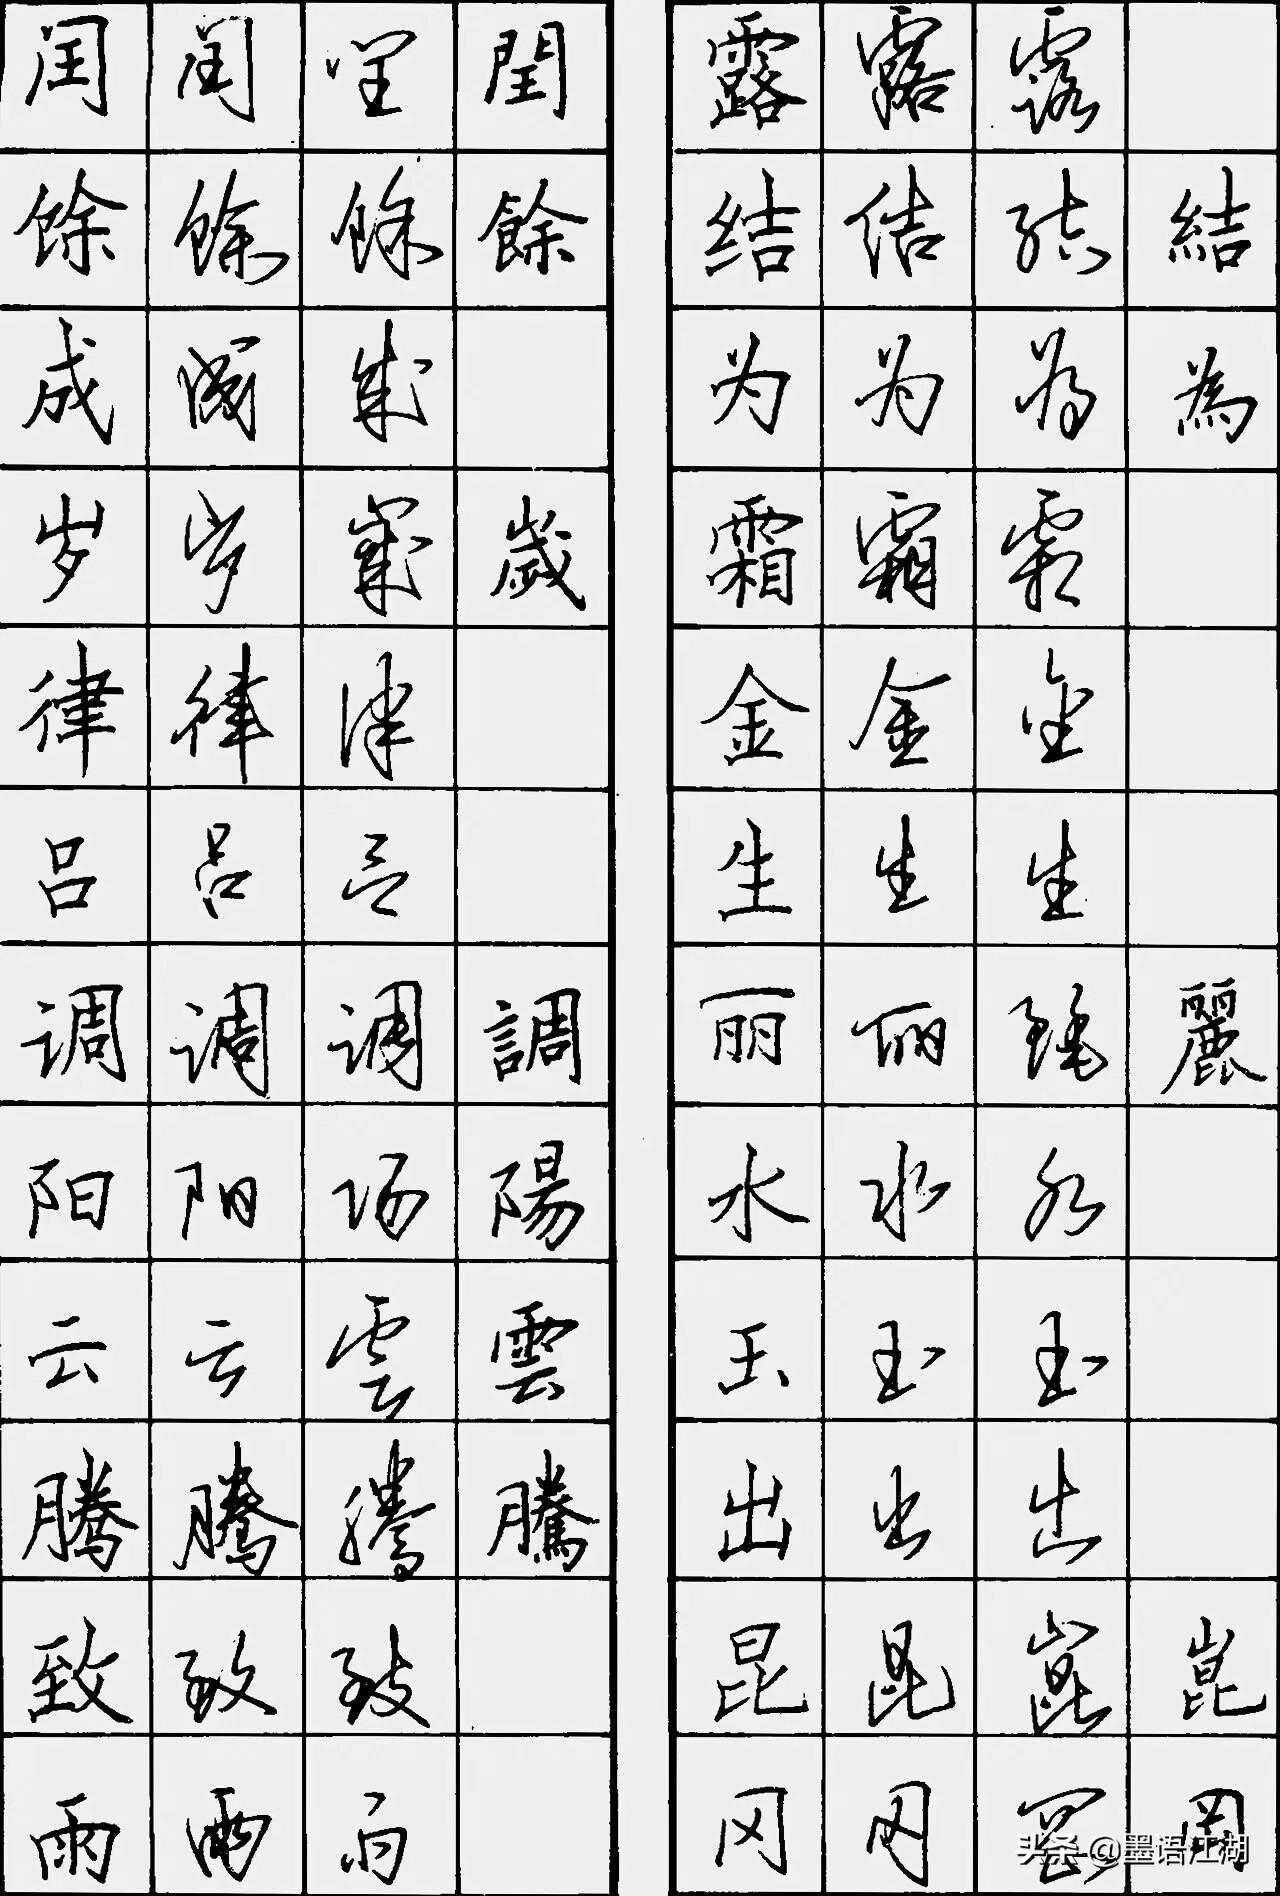 闰 闰 閏 閏
馀 馀 馀 餘
成 成 成
岁 岁 歲 歲
律 律 律
吕 吕 吕
调 调 调 調
阳 阳 阳 陽
云 云 雲 雲
腾 腾 騰 騰
致 致 致
雨 雨 雨
露 露 露
结 结 结 結
为 为 为 為
霜 霜 霜
金 金 金
生 生 生
丽 丽 麗 麗
水 水 水
玉 玉 玉
出 出 出
昆 昆 崑 崑
冈 冈 岡 岡
头条 @墨语江湖